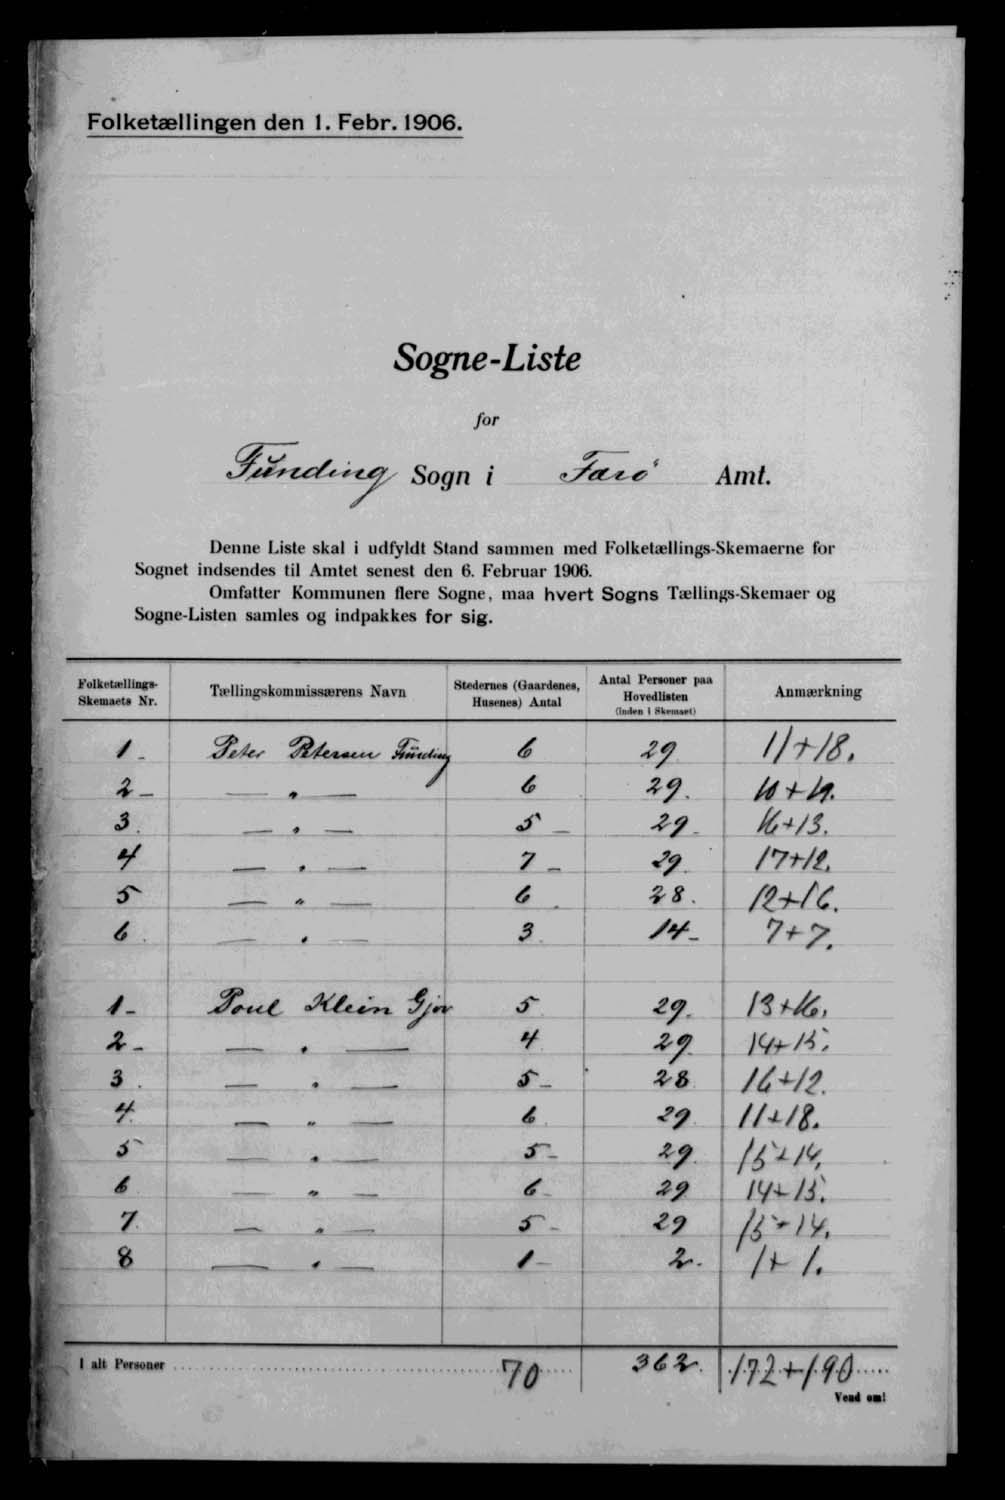 Folketællingen den 1. Febr. 1906.
Sogne-Liste
for
Funding Sogn i Færö Amt.
Denne Liste skal i udfyldt Stand sammen med Folketællings-Skemaerne for
Sognet indsendes til Amtet senest den 6. Februar 1906.
Omfatter Kommunen flere Sogne, maa hvert Sogns Tællings-Skemaer og
Sogne-Listen samles og indpakkes for sig.
Folketællings-Skemaets Nr. Tællingskommissærens Navn Stedernes (Gaardenes, Husenes) Antal Antal Personer paa Hovedlisten (Inden i Skemaet) Anmærkning
1 - Peter Petersen Funding 6 29 11+18.
2 - — " — 6 29. 10+19.
3. — " — 5 - 29 - 16+13.
4 — " — 7 - 29. 17+12.
5 — " — 6. 28. 12+16.
6. — " — 3 14 - 7+7.
1 - Poul Klein Gjov 5 29. 13+16.
2 - — " — 4 29. 14+15.
3. — " — 5 - 28 16+12.
4. — " — 6. 29. 11+18.
5 — " — 5 - 29. 15+14.
6 — " — 6 - 29 14+15.
7. — " — 5 - 29 15+14.
8 — " — 1 - 2. 1+1.
I alt Personer 70 362. 172+190
Vend om!